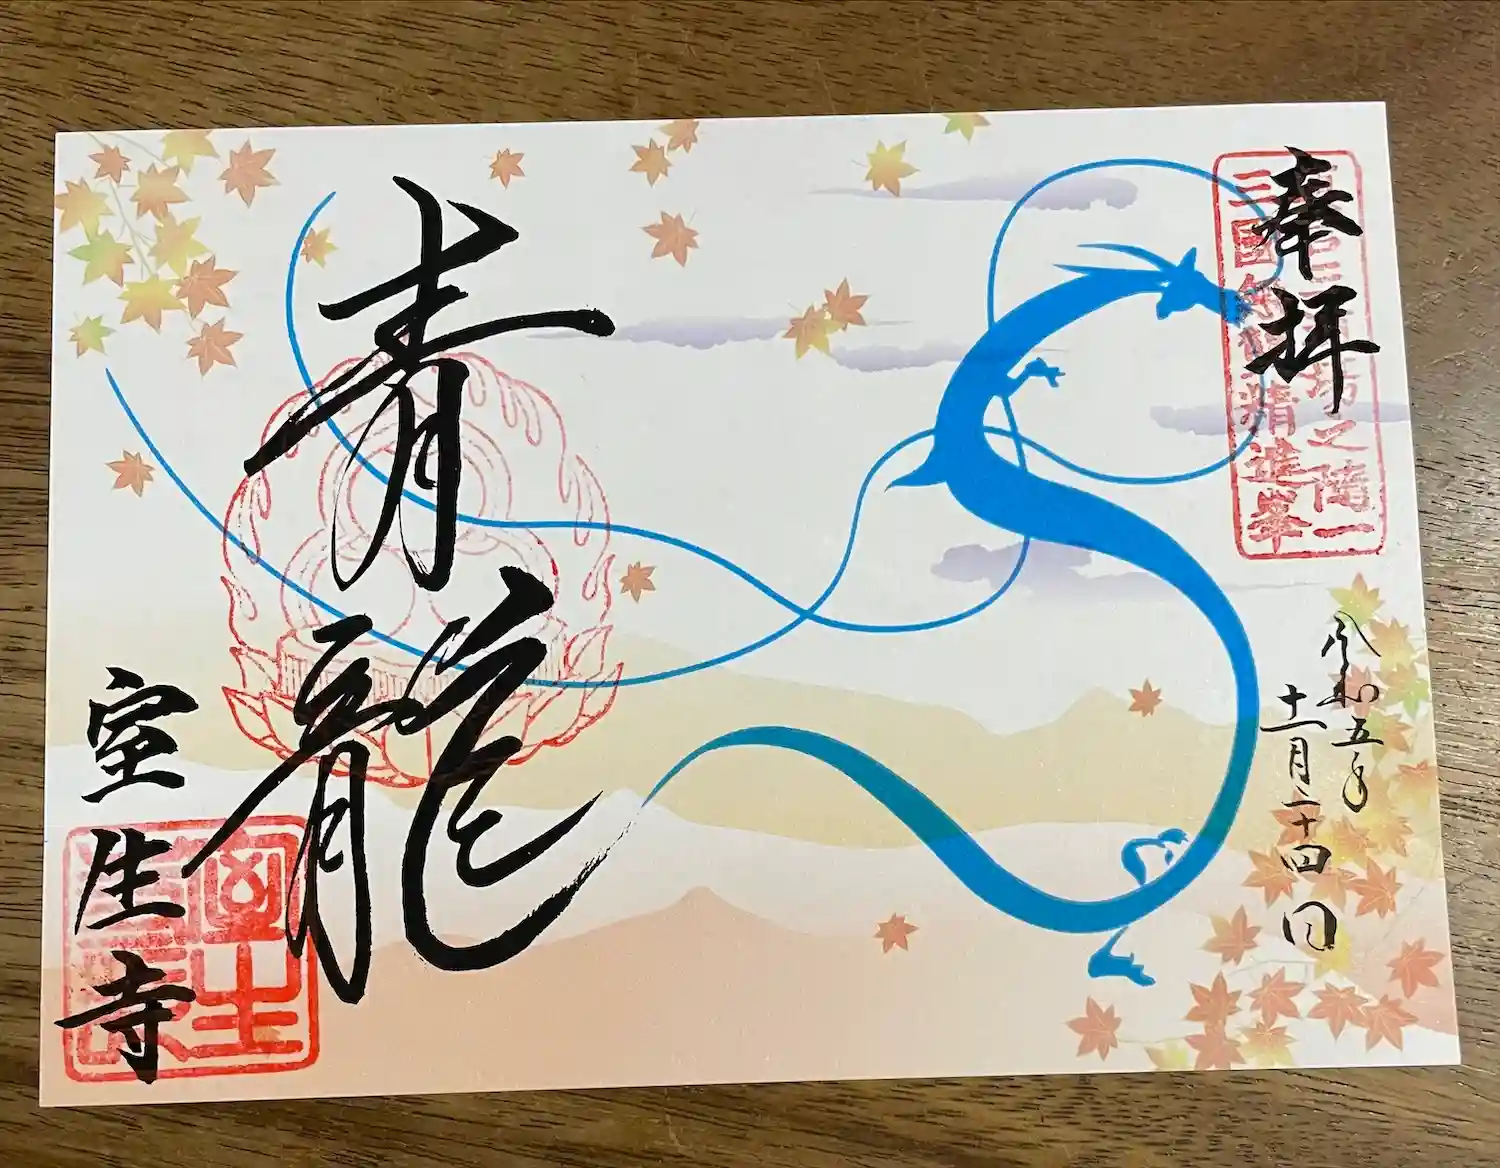 奉拝
三国無雙精進峯
令和五年
十一月二十四日
青龍
室生寺